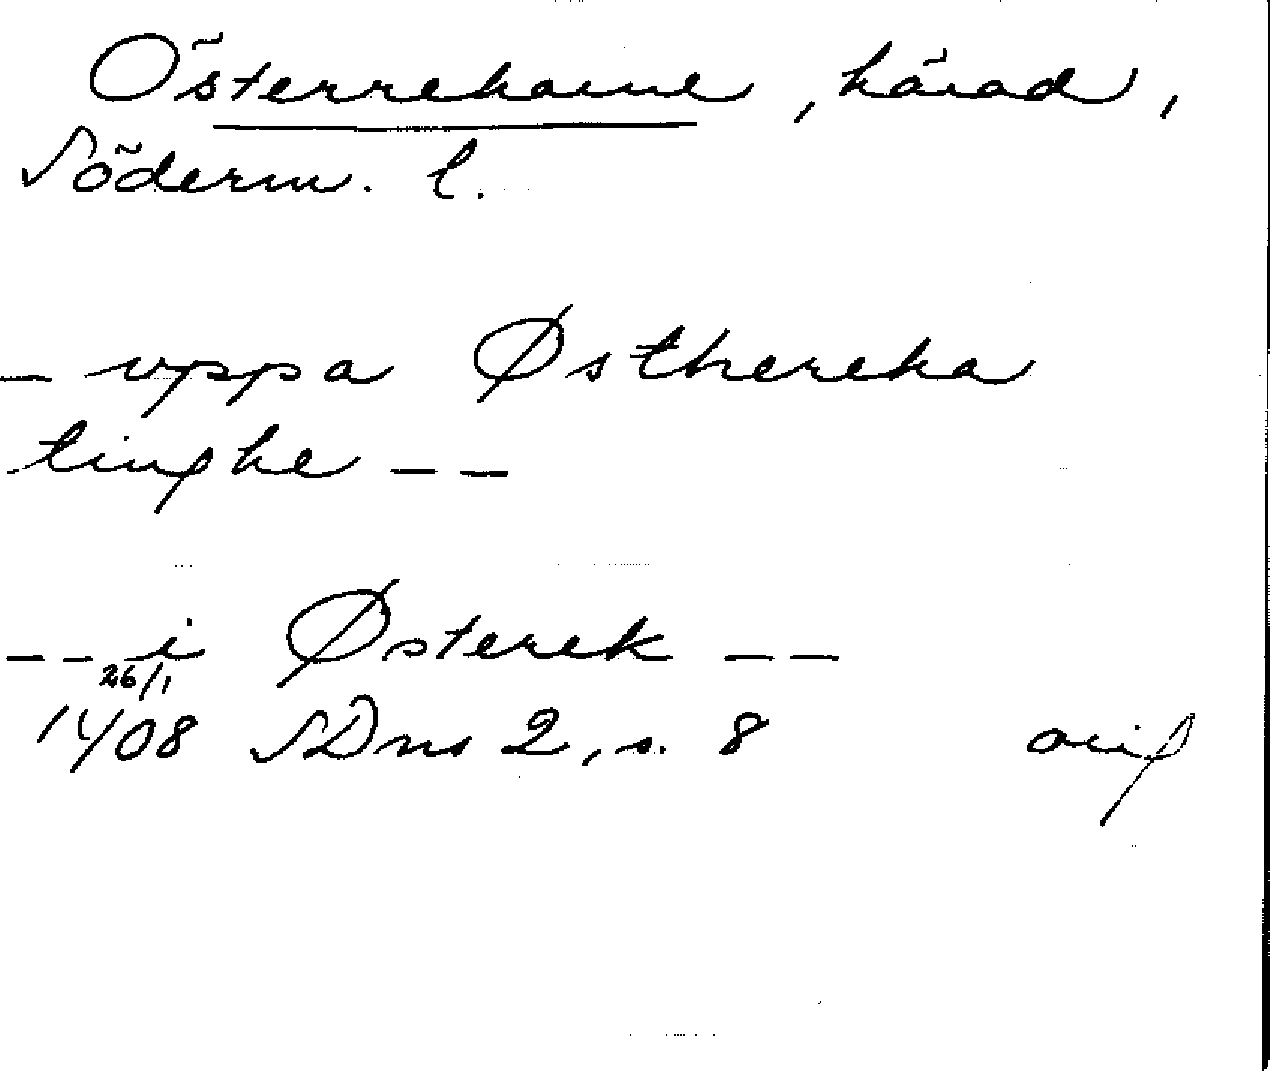 Österrekarne, härad,
Söderm. l.
- uppa Østhereka
tinghe - -
- - i Østerek - -
26/1
1408 SDns 2, s. 8 orig